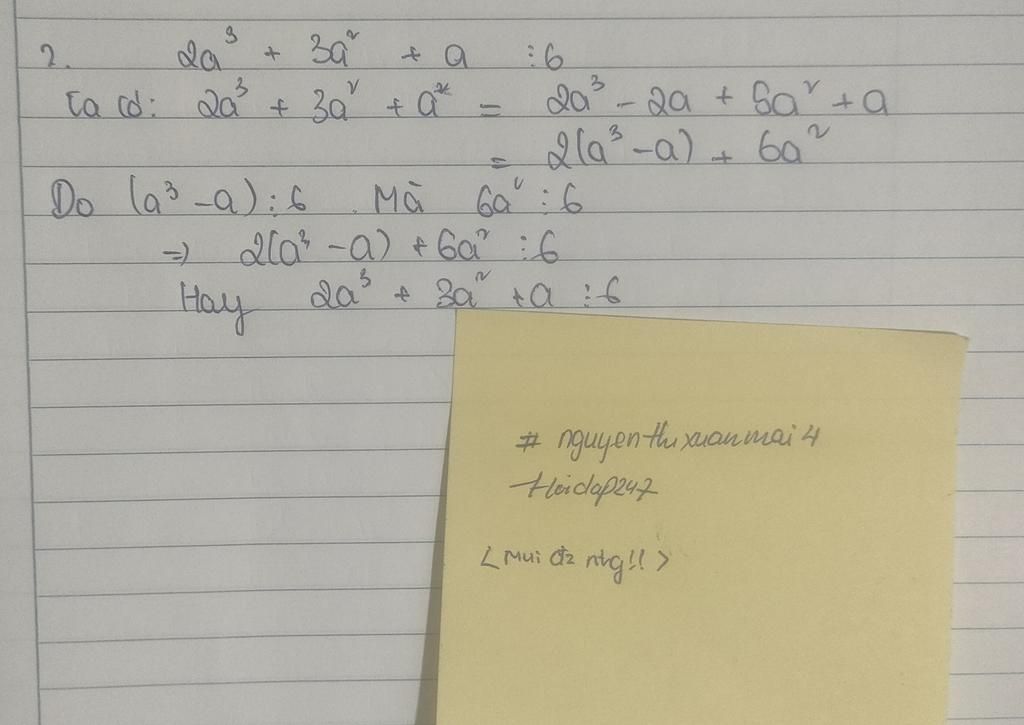 2. 2a³ + 3a² + a ⋮6
Ta có: 2a³ + 3a² + a² = 2a³ - 2a + 6a² + a
= 2(a³ - a) + 6a²
Do (a³ - a) ⋮ 6. Mà 6a² ⋮ 6
=> 2(a³ - a) + 6a² ⋮ 6
Hay 2a³ + 3a² + a ⋮ 6
# nguyenthixuanmai4
Hoidap247
< Mui đz ntg!! >